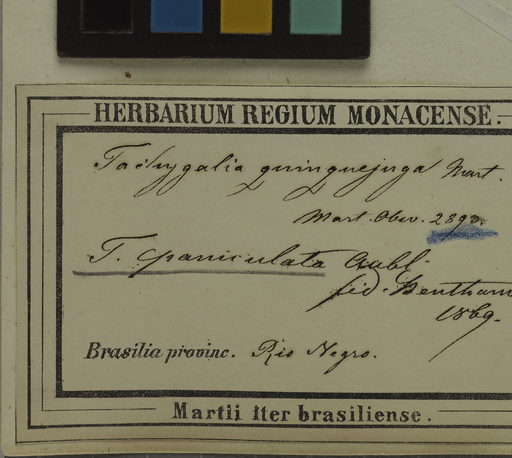 HERBARIUM REGIUM MONACENSE.
Tachygalia quinquejuga Mart.
Mart. Obs. 2890.
T. paniculata Aubl.
fid. Bentham
1869.
Brasilia provinc. Rio Negro.
Martii Iter brasiliense.